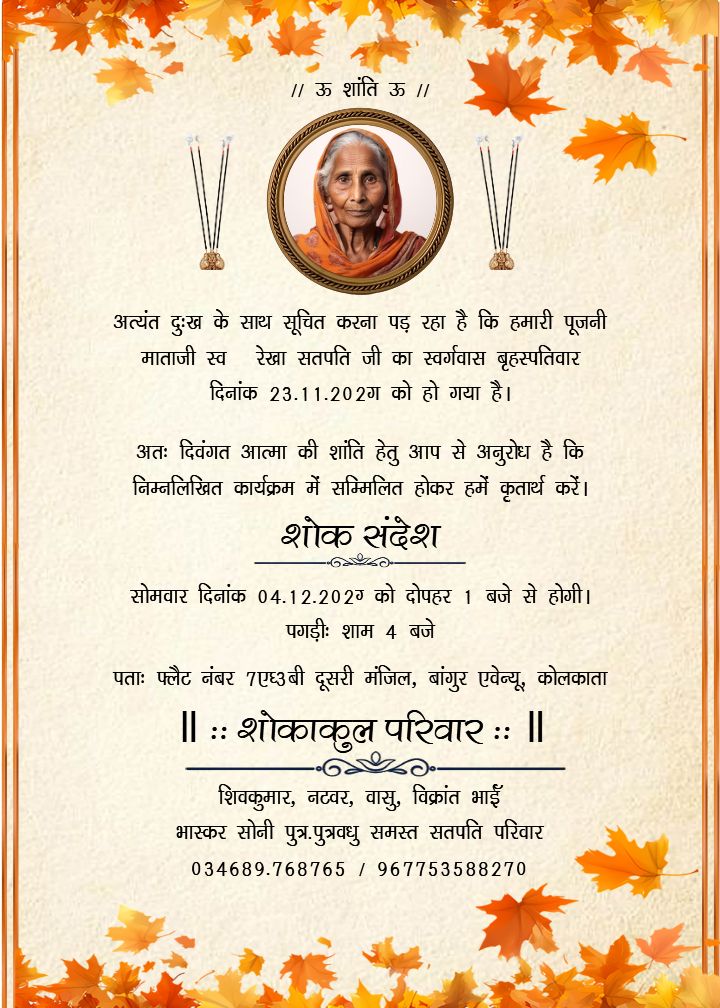 // ऊ शांति ऊ //
अत्यंत दुःख के साथ सूचित करना पड़ रहा है कि हमारी पूजनी
माताजी स्व रेखा सतपति जी का स्वर्गवास बृहस्पतिवार
दिनांक 23.11.202ग को हो गया है।
अतः दिवंगत आत्मा की शांति हेतु आप से अनुरोध है कि
निम्नलिखित कार्यक्रम में सम्मिलित होकर हमें कृतार्थ करें।
शोक संदेश
सोमवार दिनांक 04.12.202ग को दोपहर 1 बजे से होगी।
पगड़ीः शाम 4 बजे
पताः फ्लैट नंबर 7एध3बी दूसरी मंजिल, बांगुर एवेन्यू, कोलकाता
॥ :: शोकाकुल परिवार :: ॥
शिवकुमार, नटवर, वासु, विक्रांत भाईँ
भास्कर सोनी पुत्र.पुत्रवधु समस्त सतपति परिवार
034689.768765 / 967753588270